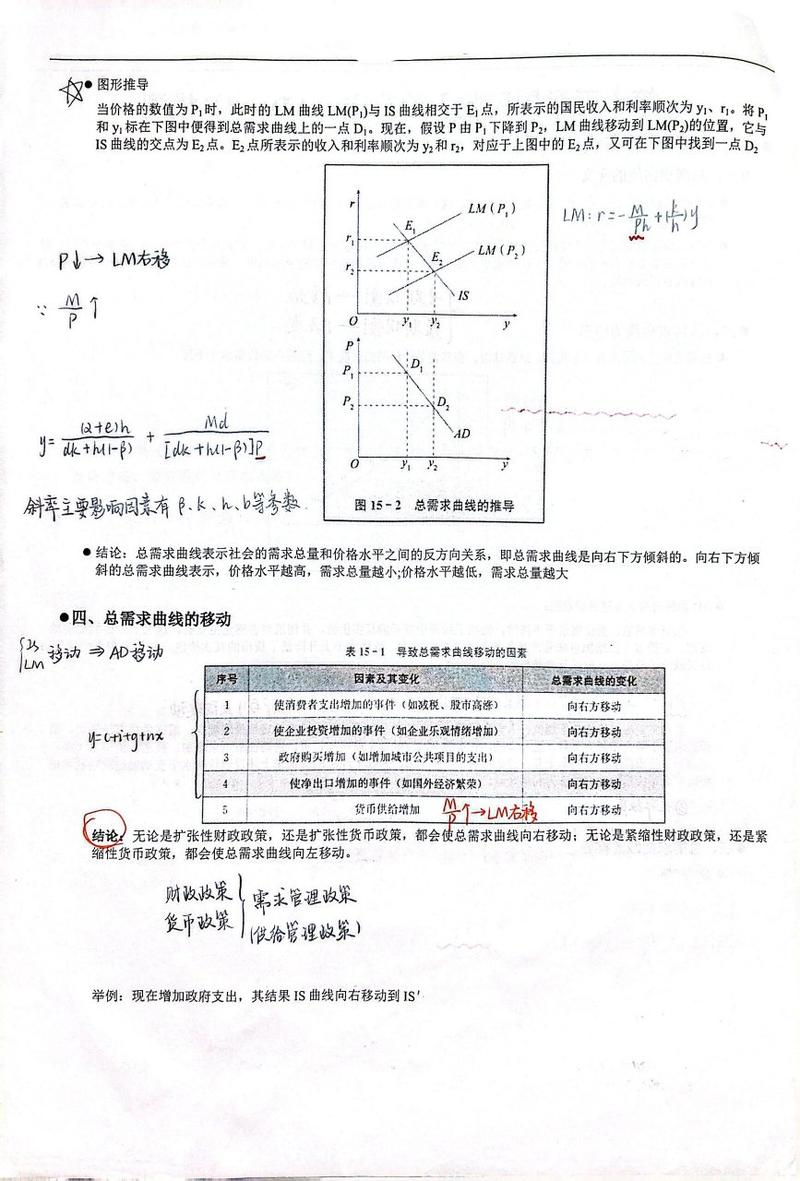 ● 图形推导
当价格的数值为 P₁时，此时的 LM 曲线 LM(P₁)与 IS 曲线相交于 E₁点，所表示的国民收入和利率顺次为 y₁、r₁。将 P₁
和 y₁标在下图中便得到总需求曲线上的一点 D₁。现在，假设 P 由 P₁下降到 P₂，LM 曲线移动到 LM(P₂)的位置，它与
IS 曲线的交点为 E₂点。E₂点所表示的收入和利率顺次为 y₂和 r₂，对应于上图中的 E₂点，又可在下图中找到一点 D₂
r
LM（P₁）
LM: r=-M/Ph+(k/h)y
E₁
r₁
LM（P₂）
E₂
P↓→LM右移
r₂
IS
∵ M/P↑
O y₁ y₂ y
P
P₁ D₁
P₂ D₂
y=(α+e)h/dk+h(1-β) + Md/[dk+h(1-β)]P
AD
O y₁ y₂ y
斜率主要影响因素有β、k、h、b等参数
图 15－2 总需求曲线的推导
● 结论：总需求曲线表示社会的需求总量和价格水平之间的反方向关系，即总需求曲线是向右下方倾斜的。向右下方倾
斜的总需求曲线表示，价格水平越高，需求总量越小;价格水平越低，需求总量越大
●四、总需求曲线的移动
{IS LM 移动 ⇒ AD移动
表 15－1 导致总需求曲线移动的因素
序号 因素及其变化 总需求曲线的变化
1 使消费者支出增加的事件（如减税、股市高涨） 向右方移动
2 使企业投资增加的事件（如企业乐观情绪增加） 向右方移动
y=c+i+g+nx
3 政府购买增加（如增加城市公共项目的支出） 向右方移动
4 使净出口增加的事件（如国外经济繁荣） 向右方移动
5 货币供给增加 M/P↑→LM右移 向右方移动
结论：无论是扩张性财政政策，还是扩张性货币政策，都会使总需求曲线向右移动；无论是紧缩性财政政策，还是紧
缩性货币政策，都会使总需求曲线向左移动。
财政政策 需求管理政策
货币政策 (供给管理政策)
举例：现在增加政府支出，其结果 IS 曲线向右移动到 IS′